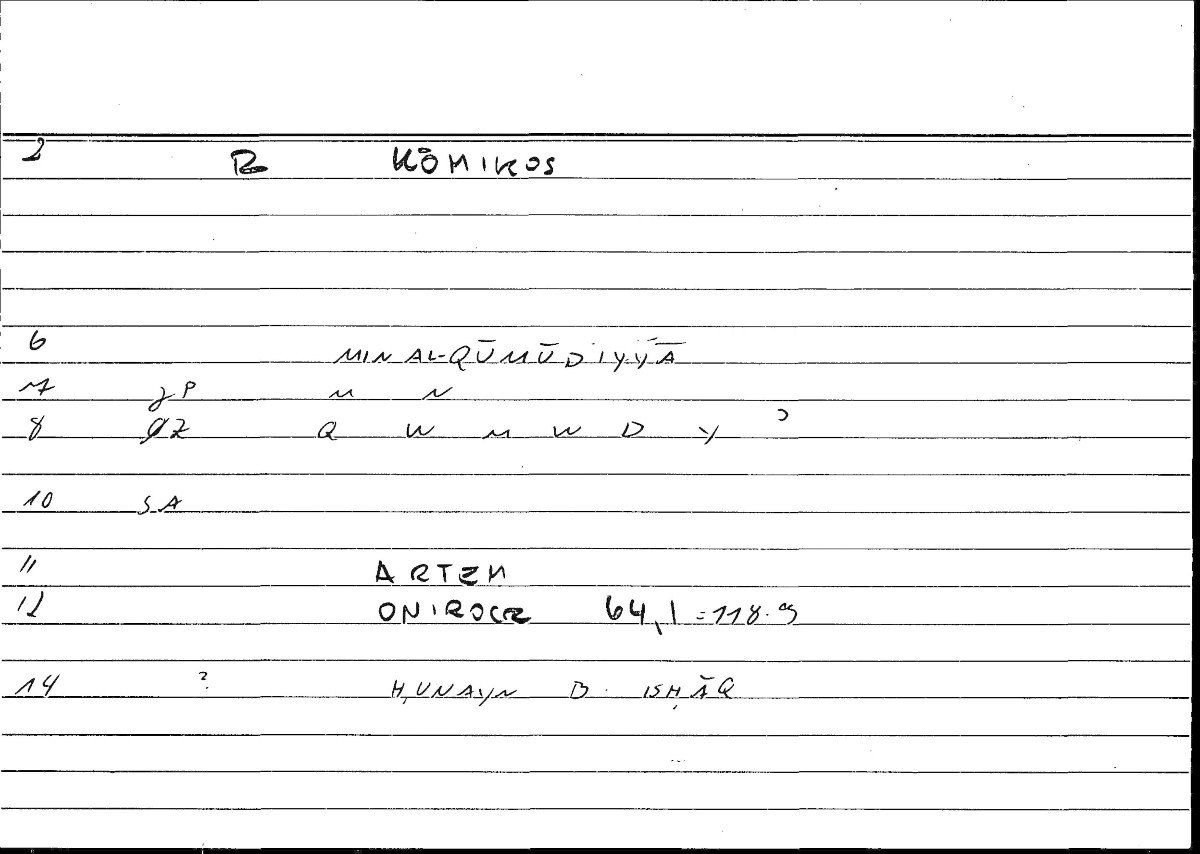 2 R KŌMIKOS
6 MIN AL-QŪMŪDIYYĀ
7 JP M N
8 QZ Q W M W D Y ʾ
10 SA
11 ARTEM
12 ONIROCR 64,1 = 118.9
14 ? ḤUNAYN B. ISḤĀQ